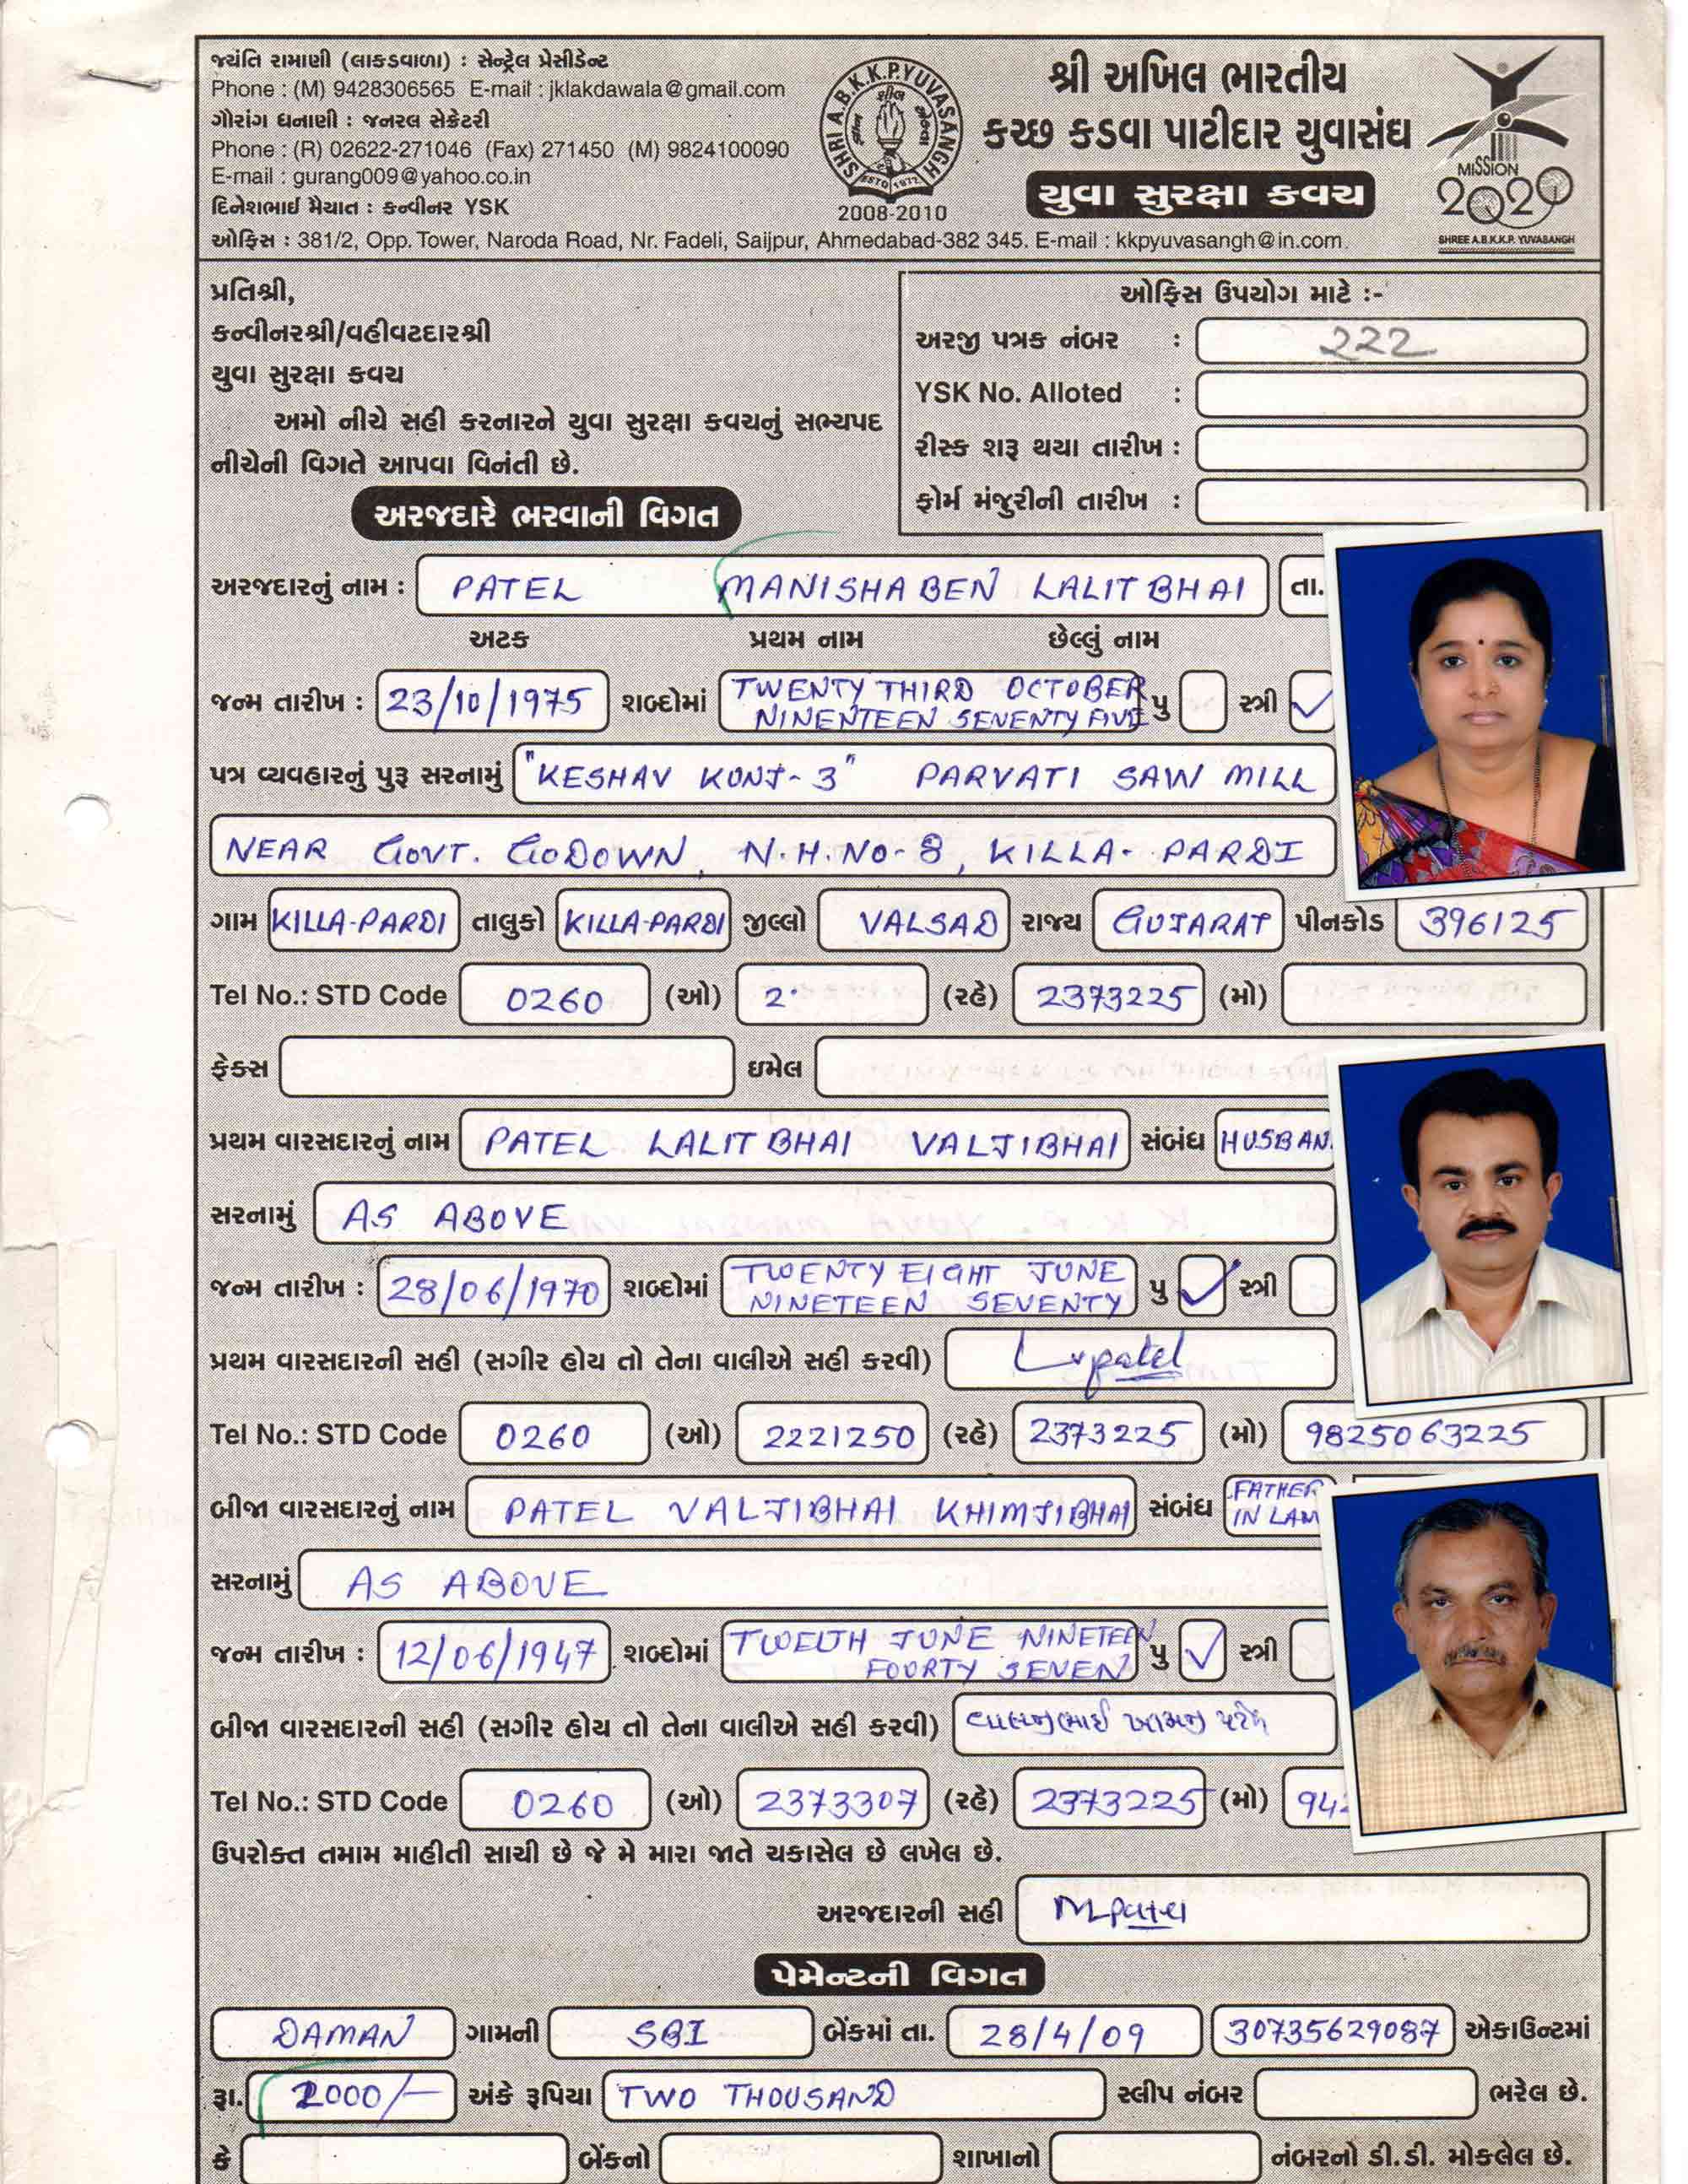 જયંતિ રામાણી (લાકડાવાળા) : સેન્ટ્રેલ પ્રેસીડેન્ટ
Phone : (M) 9428306565 E-mail : jklakdawala@gmail.com
ગૌરાંગ ધનાણી : જનરલ સેક્રેટરી
Phone : (R) 02622-271046 (Fax) 271450 (M) 9824100090
E-mail : gurang009@yahoo.co.in
દિનેશભાઈ મૈયાત : કન્વીનર YSK
SHRI A.B.K.K.P.YUVASANGH
ESTD 1972
2008-2010
શ્રી અખિલ ભારતીય
કચ્છ કડવા પાટીદાર યુવાસંઘ
યુવા સુરક્ષા કવચ
MISSION
2020
SHREE A.B.K.K.P. YUVASANGH
ઓફિસ : 381/2, Opp. Tower, Naroda Road, Nr. Fadeli, Saijpur, Ahmedabad-382 345. E-mail : kkpyuvasangh@in.com.
પ્રતિશ્રી,
કન્વીનરશ્રી/વહીવટદારશ્રી
યુવા સુરક્ષા કવચ
અમો નીચે સહી કરનારને યુવા સુરક્ષા કવચનું સભ્યપદ
નીચેની વિગતે આપવા વિનંતી છે.
ઓફિસ ઉપયોગ માટે :-
અરજી પત્રક નંબર : 222
YSK No. Alloted :
રીસ્ક શરૂ થયા તારીખ :
ફોર્મ મંજુરીની તારીખ :
અરજદારે ભરવાની વિગત
અરજદારનું નામ : PATEL MANISHABEN LALITBHAI તા.
અટક પ્રથમ નામ છેલ્લું નામ
જન્મ તારીખ : 23/10/1975 શબ્દોમાં TWENTY THIRD OCTOBER NINENTEEN SEVENTY FIVE પુ સ્ત્રી ✓
પત્ર વ્યવહારનું પુરૂ સરનામું "KESHAV KUNJ-3" PARVATI SAW MILL
NEAR GOVT. GODOWN, N.H.NO-8, KILLA-PARDI
ગામ KILLA-PARDI તાલુકો KILLA-PARDI જીલ્લો VALSAD રાજ્ય GUJARAT પીનકોડ 396125
Tel No.: STD Code 0260 (ઓ) 2 (રહે) 2373225 (મો)
ફેક્સ ઇમેલ
પ્રથમ વારસદારનું નામ PATEL LALITBHAI VALJIBHAI સંબંધ HUSBAN
સરનામું AS ABOVE
જન્મ તારીખ : 28/06/1970 શબ્દોમાં TWENTY EIGHT JUNE NINETEEN SEVENTY પુ ✓ સ્ત્રી
પ્રથમ વારસદારની સહી (સગીર હોય તો તેના વાલીએ સહી કરવી) Lvpatel
Tel No.: STD Code 0260 (ઓ) 2221250 (રહે) 2373225 (મો) 9825063225
બીજા વારસદારનું નામ PATEL VALJIBHAI KHIMJIBHAI સંબંધ FATHER IN LAW
સરનામું AS ABOVE
જન્મ તારીખ : 12/06/1947 શબ્દોમાં TWELTH JUNE NINETEEN FOORTY SEVEN પુ ✓ સ્ત્રી
બીજા વારસદારની સહી (સગીર હોય તો તેના વાલીએ સહી કરવી)
Tel No.: STD Code 0260 (ઓ) 2373307 (રહે) 2373225 (મો) 94
ઉપરોક્ત તમામ માહીતી સાચી છે જે મે મારા જાતે ચકાસેલ છે લખેલ છે.
અરજદારની સહી M.Patel
પેમેન્ટની વિગત
DAMAN ગામની SBI બેંકમાં તા. 28/4/09 30735629087 એકાઉન્ટમાં
રૂા. 2000/- અંકે રૂપિયા TWO THOUSAND સ્લીપ નંબર ભરેલ છે.
કે બેંકનો શાખાનો નંબરનો ડી.ડી. મોકલેલ છે.